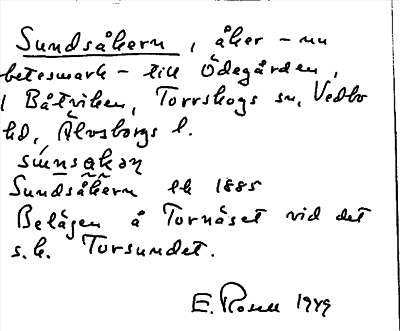 Sundsåkern, åker - nu
betesmark - till Ödegården,
i Båtviken, Torrskogs sn, Vedbo
hd, Älvsborgs l.
Sundsåkern lk 1885
Belägen å Tornäset vid det
s.k. Torsundet.
E. Rosell 1949